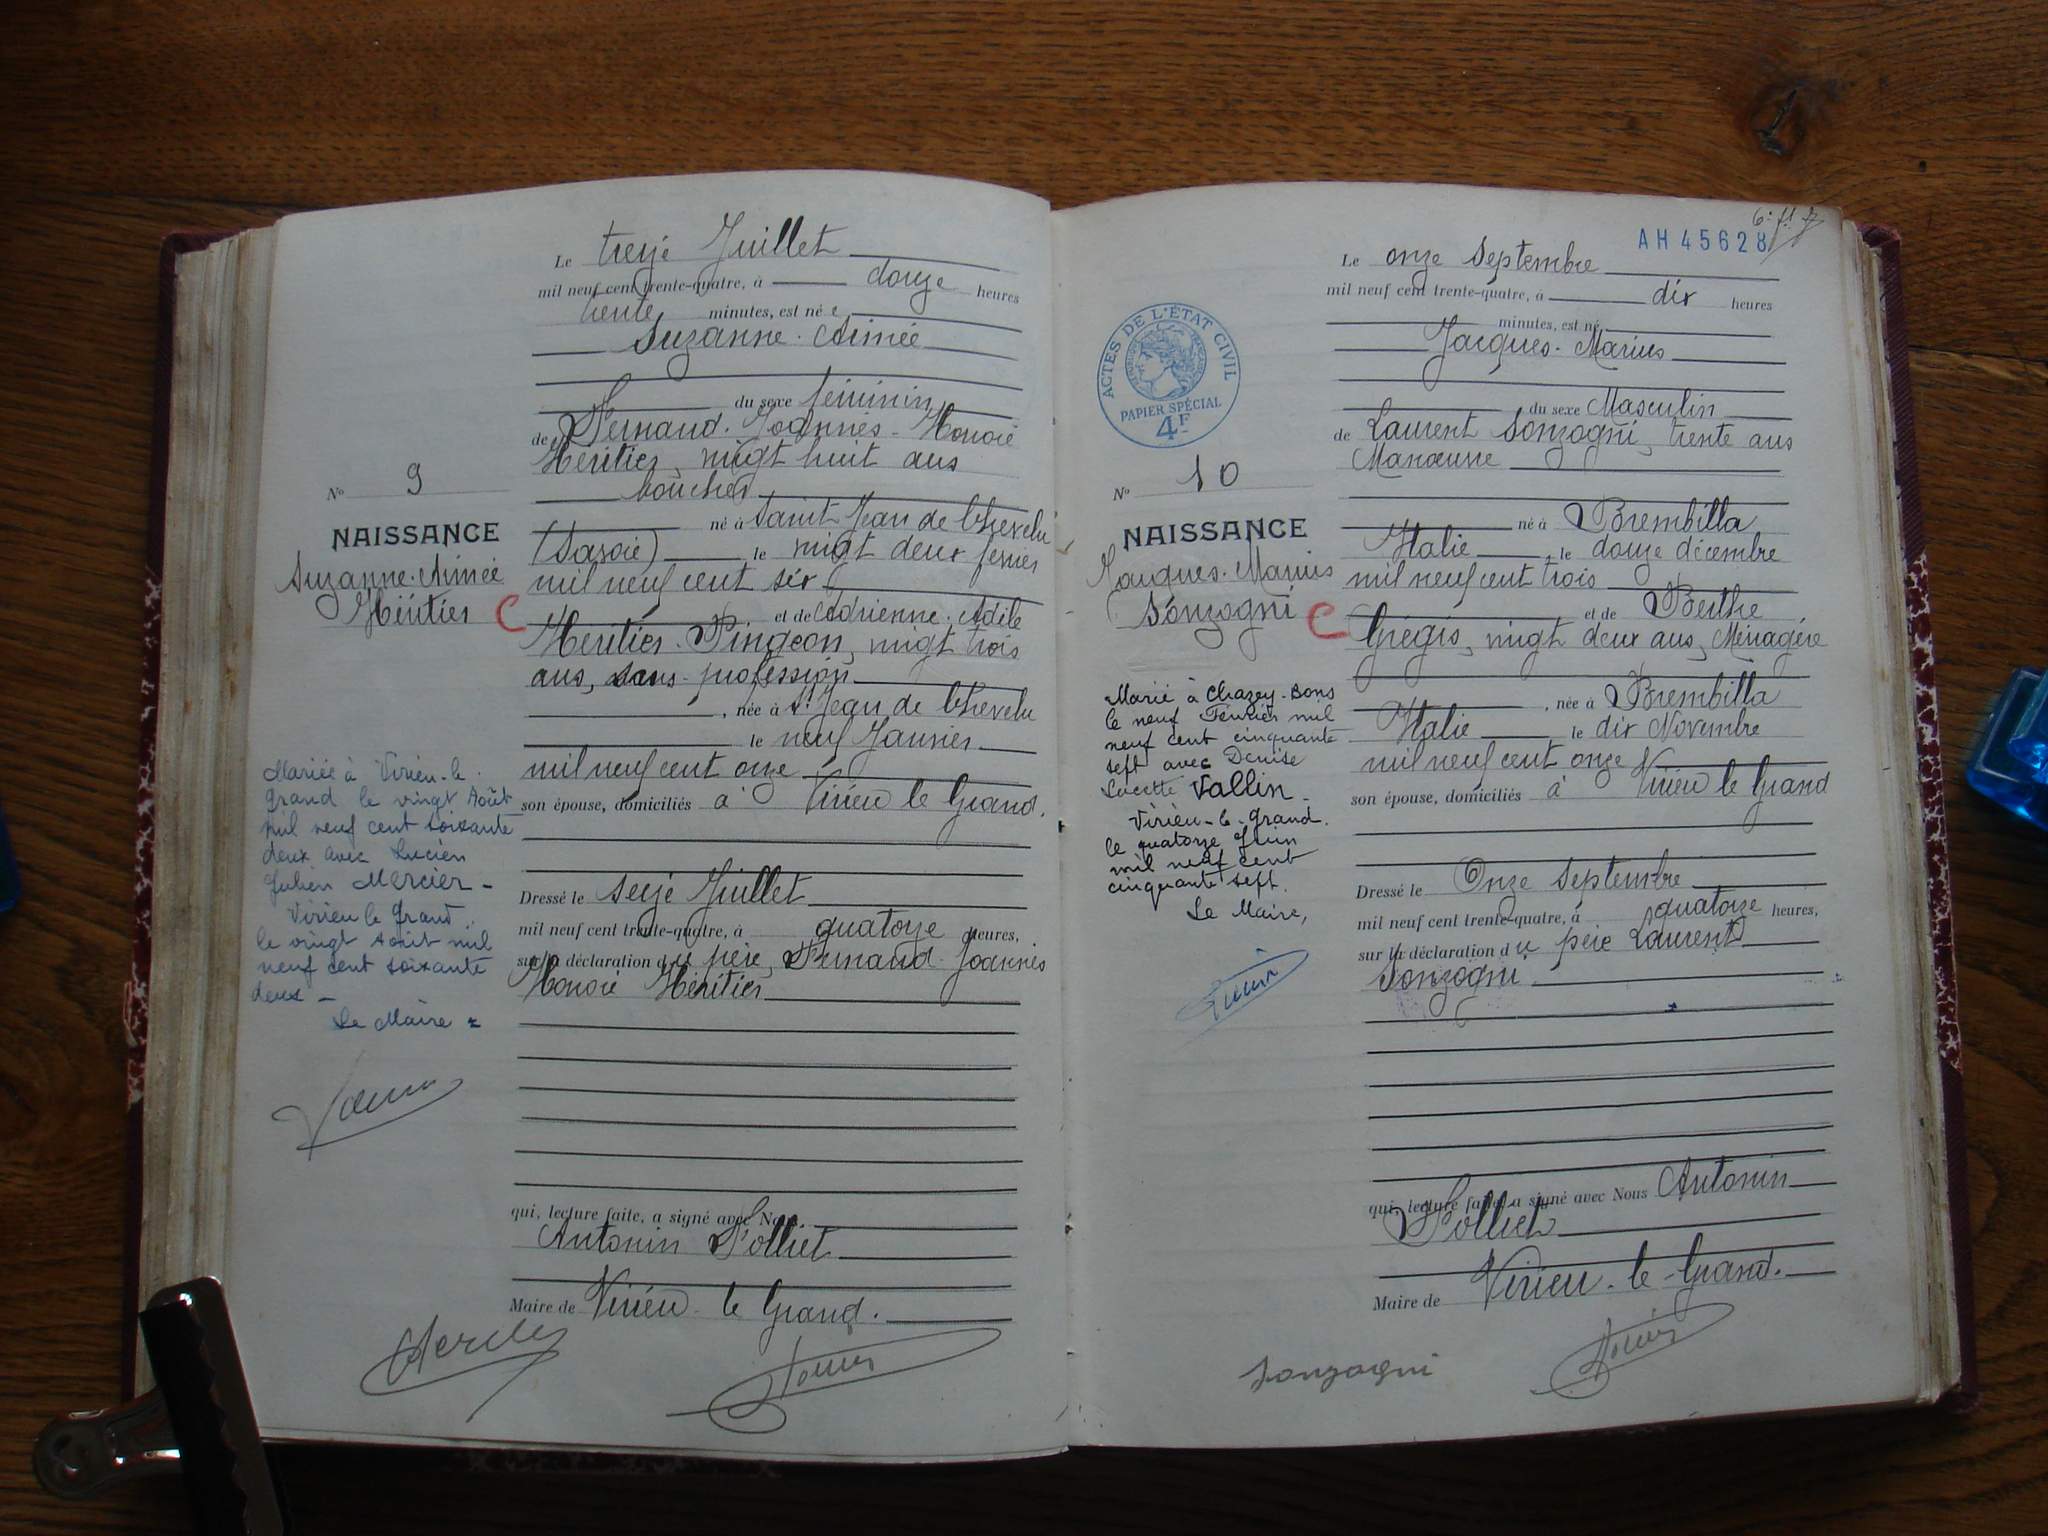 Le treize Juillet
mil neuf cent trente-quatre, à douze heures
trente minutes, est né e
Suzanne. Aimée
du sexe féminin
de Fernand. Joannès. Honoré
Héritier, vingt huit ans
boucher
né à Saint Jean de Chevelu
(Savoie) le vingt deux février
mil neuf cent six
et de Adrienne. Adèle
Héritier. Pingeon, vingt trois
ans, sans profession
, née à St Jean de Chevelu
le neuf Janvier
mil neuf cent onze
son épouse, domiciliés à Virieu le Grand.
Dressé le seize Juillet
mil neuf cent trente-quatre, à quatorze heures,
sur la déclaration du père, Fernand Joannès
Honoré Héritier
qui, lecture faite, a signé avec Nous
Antonin Polliet
Maire de Virieu le Grand.
No 9
NAISSANCE
Suzanne. Aimée
Héritier
C
Mariée à Virieu-le.
grand le vingt Août
mil neuf cent soixante
deux avec Lucien
Julien Mercier -
Virieu le grand.
le vingt Août mil
neuf cent soixante
deux -
Le Maire
6e fl 7
AH 45628
Le onze Septembre
mil neuf cent trente-quatre, à dix heures
minutes, est né
Jacques. Marius
du sexe Masculin
de Laurent Sonzogni, trente ans
Manœuvre
né à Brembilla
Italie, le douze décembre
mil neuf cent trois
et de Berthe
Grégis, vingt deux ans, Ménagère
, née à Brembilla
Italie le dix Novembre
mil neuf cent onze
son épouse, domiciliés à Virieu le Grand
Dressé le Onze Septembre
mil neuf cent trente-quatre, à quatorze heures,
sur la déclaration du père Laurent
Sonzogni
qui, lecture faite, a signé avec Nous Antonin
Polliet
Maire de Virieu-le-Grand.
Sonzogni
ACTES DE L'ÉTAT CIVIL
PAPIER SPÉCIAL
4F
No 10
NAISSANCE
Jacques. Marius
Sonzogni
C
Marié à Chazey-Bons
le neuf Février mil
neuf cent cinquante
sept avec Denise
Lucette Vallin -
Virieu-le-grand.
le quatorze Juin
mil neuf cent
cinquante sept.
Le Maire,